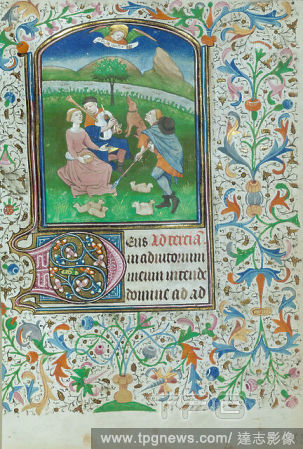 Deus Ad tercia(m)
in adiutorium
meum intende
domine ad ad
www.tpgnews.com/ 達志影像